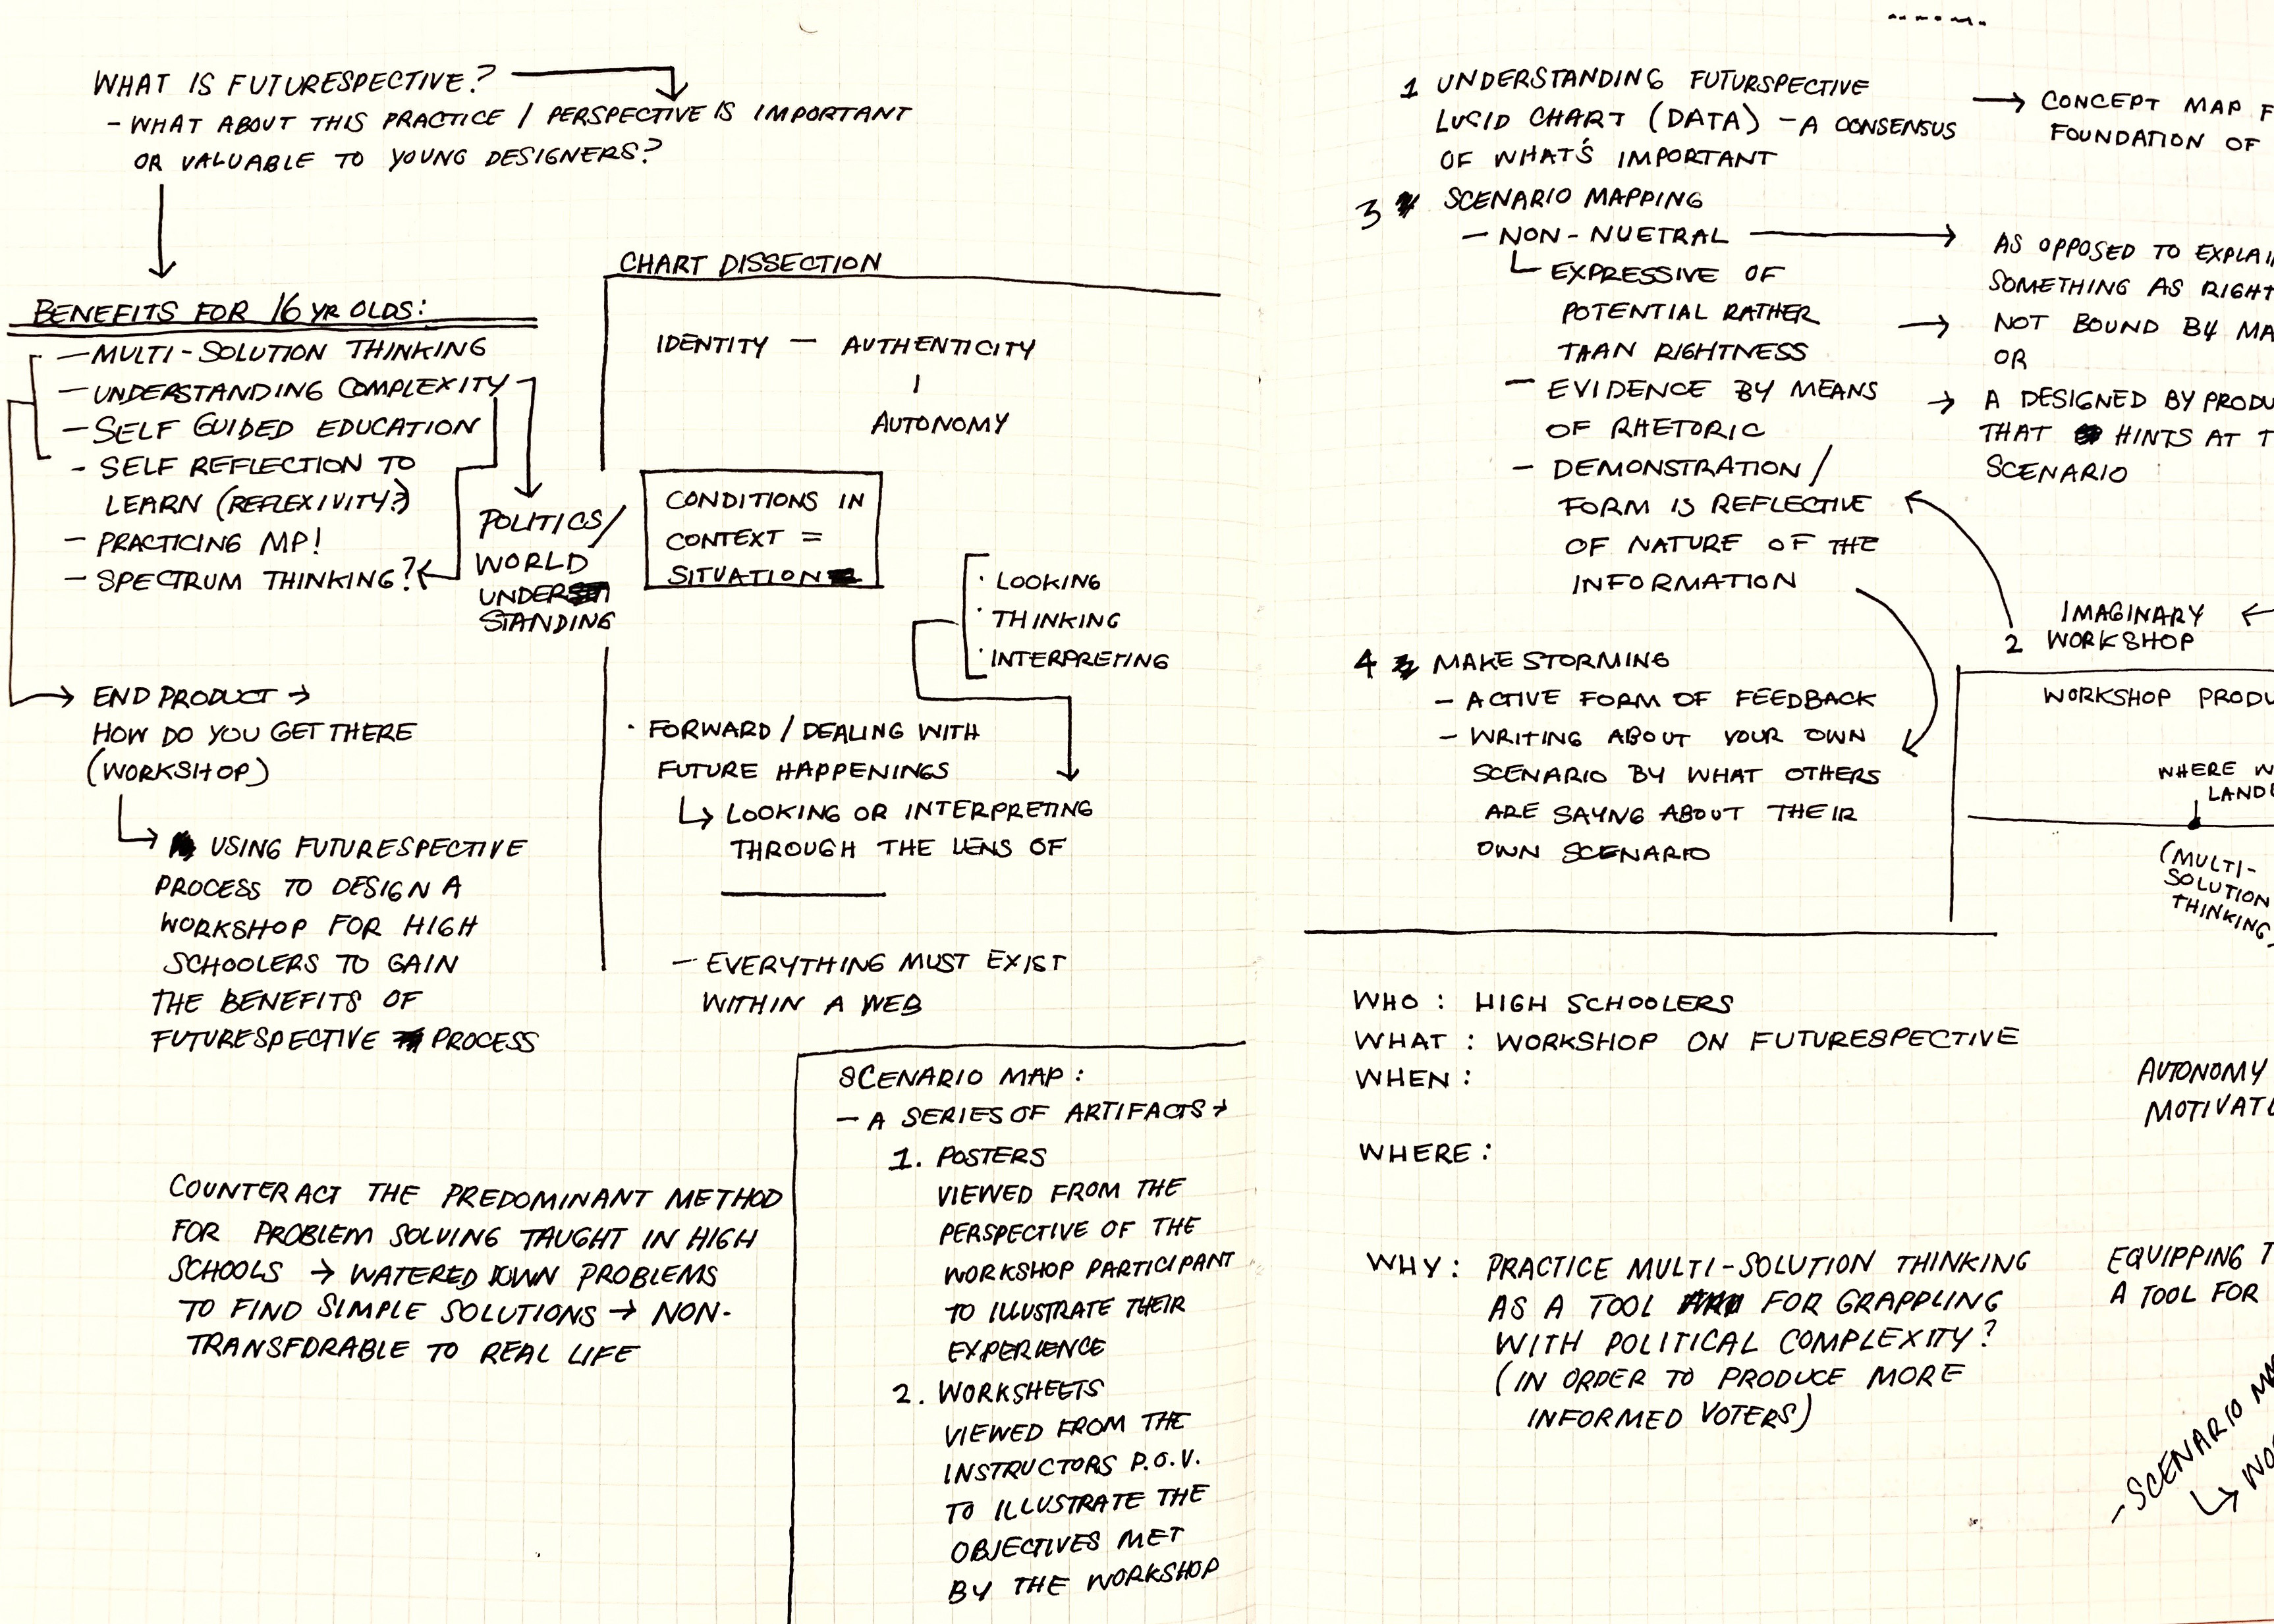 WHAT IS FUTURESPECTIVE?
- WHAT ABOUT THIS PRACTICE / PERSPECTIVE IS IMPORTANT
OR VALUABLE TO YOUNG DESIGNERS?
BENEFITS FOR 16 YR OLDS:
- MULTI-SOLUTION THINKING
- UNDERSTANDING COMPLEXITY
- SELF GUIDED EDUCATION
- SELF REFLECTION TO
LEARN (REFLEXIVITY?)
- PRACTICING MP!
- SPECTRUM THINKING?
POLITICS/
WORLD
UNDER
STANDING
END PRODUCT →
HOW DO YOU GET THERE
(WORKSHOP)
USING FUTURESPECTIVE
PROCESS TO DESIGN A
WORKSHOP FOR HIGH
SCHOOLERS TO GAIN
THE BENEFITS OF
FUTURESPECTIVE PROCESS
COUNTERACT THE PREDOMINANT METHOD
FOR PROBLEM SOLVING TAUGHT IN HIGH
SCHOOLS → WATERED DOWN PROBLEMS
TO FIND SIMPLE SOLUTIONS → NON-
TRANSFORABLE TO REAL LIFE
CHART DISSECTION
IDENTITY — AUTHENTICITY
AUTONOMY
CONDITIONS IN
CONTEXT =
SITUATION
· LOOKING
· THINKING
· INTERPRETING
· FORWARD / DEALING WITH
FUTURE HAPPENINGS
↳ LOOKING OR INTERPRETING
THROUGH THE LENS OF
- EVERYTHING MUST EXIST
WITHIN A WEB
SCENARIO MAP:
- A SERIES OF ARTIFACTS →
1. POSTERS
VIEWED FROM THE
PERSPECTIVE OF THE
WORKSHOP PARTICIPANT
TO ILLUSTRATE THEIR
EXPERIENCE
2. WORKSHEETS
VIEWED FROM THE
INSTRUCTORS P.O.V.
TO ILLUSTRATE THE
OBJECTIVES MET
BY THE WORKSHOP
1 UNDERSTANDING FUTURSPECTIVE
LUCID CHART (DATA) - A CONSENSUS
OF WHAT'S IMPORTANT
→ CONCEPT MAP F
FOUNDATION OF
3 SCENARIO MAPPING
- NON-NUETRAL
EXPRESSIVE OF
POTENTIAL RATHER
TAAN RIGHTNESS
- EVIDENCE BY MEANS
OF RHETORIC
- DEMONSTRATION /
FORM IS REFLECTIVE
OF NATURE OF THE
INFORMATION
AS OPPOSED TO EXPLAI
SOMETHING AS RIGHT
→ NOT BOUND BY MA
OR
→ A DESIGNED BY PRODU
THAT HINTS AT T
SCENARIO
IMAGINARY ←
2 WORKSHOP
4 MAKE STORMING
- ACTIVE FORM OF FEEDBACK
- WRITING ABOUT YOUR OWN
SCENARIO BY WHAT OTHERS
ARE SAYNG ABOUT THEIR
OWN SCENARIO
WORKSHOP PRODU
WHERE W
LAND
(MULTI-
SOLUTION
THINKING
WHO : HIGH SCHOOLERS
WHAT : WORKSHOP ON FUTURESPECTIVE
WHEN :
WHERE :
WHY : PRACTICE MULTI-SOLUTION THINKING
AS A TOOL FOR GRAPPLING
WITH POLITICAL COMPLEXITY?
(IN ORDER TO PRODUCE MORE
INFORMED VOTERS)
AUTONOMY
MOTIVAT
EQUIPPING T
A TOOL FOR
- SCENARIO MA
↳ WO